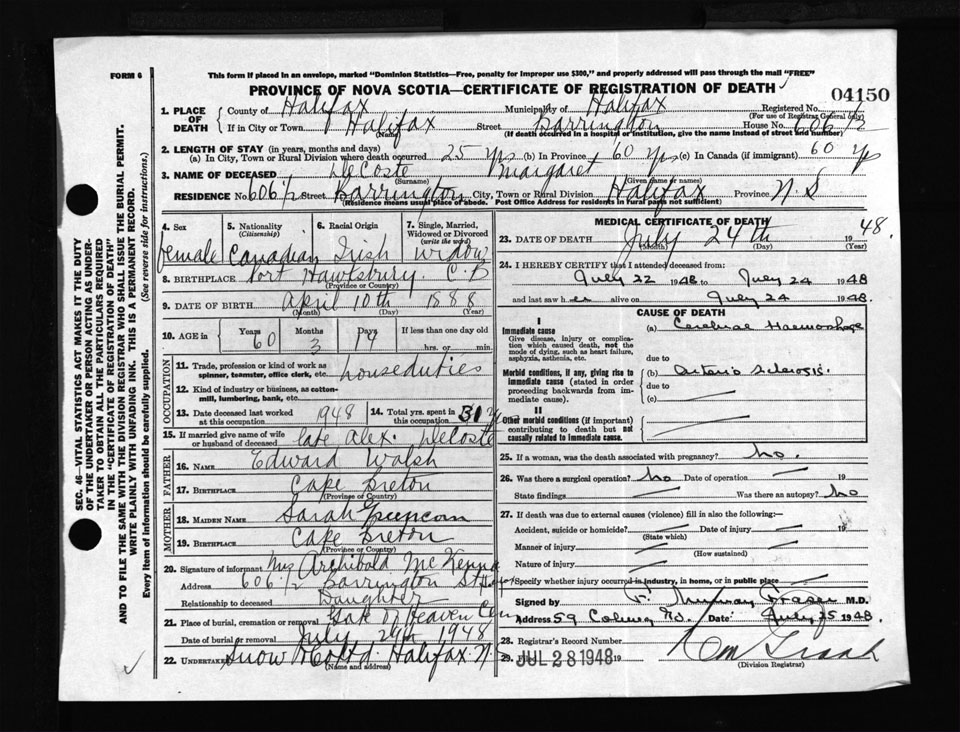 FORM 6
This form if placed in an envelope, marked "Dominion Statistics—Free, penalty for improper use $300," and properly addressed will pass through the mail "FREE"
PROVINCE OF NOVA SCOTIA—CERTIFICATE OF REGISTRATION OF DEATH
04150
1. PLACE OF DEATH
County of Halifax Municipality of Halifax Registered No.
(For use of Registrar General only)
If in City or Town Halifax Street Barrington House No. 606 1/2
(Name) (If death occurred in a hospital or institution, give name instead of street and number)
2. LENGTH OF STAY (in years, months and days)
(a) In City, Town or Rural Division where death occurred 25 yrs (b) In Province 60 yrs (c) In Canada (if immigrant) 60 yrs
3. NAME OF DECEASED DeCoste Margaret
(Surname) (Given name or names)
RESIDENCE No. 606 1/2 Street Barrington City, Town or Rural Division Halifax Province N.S
(Residence means usual place of abode. Post Office Address for residents in rural parts not sufficient)
4. Sex
female
5. Nationality
(Citizenship)
Canadian
6. Racial Origin
Irish
7. Single, Married, Widowed or Divorced
(write the word)
widow
8. BIRTHPLACE Port Hawksbury. C.B
(Province or Country)
9. DATE OF BIRTH April 10th 1888
(Month) (Day) (Year)
10. AGE in Years 60 Months 3 Days 14 If less than one day old
hrs. or min.
OCCUPATION
11. Trade, profession or kind of work as spinner, teamster, office clerk, etc. houseduties
12. Kind of industry or business, as cotton-mill, lumbering, bank, etc.
13. Date deceased last worked at this occupation 1948 14. Total yrs. spent in this occupation 31 y
15. If married give name of wife or husband of deceased late Alex. DeCoste
FATHER
16. NAME Edward Walsh
17. BIRTHPLACE Cape Breton
(Province or Country)
MOTHER
18. MAIDEN NAME Sarah
19. BIRTHPLACE Cape Breton
(Province or Country)
20. Signature of informant Mrs Archibald McKenna
Address 606 1/2 Barrington St
Relationship to deceased Daughter
21. Place of burial, cremation or removal Gate of Heaven Cem
Date of burial or removal July 1948
22. Undertaker Snow Halifax N.
(Name and address)
MEDICAL CERTIFICATE OF DEATH
23. DATE OF DEATH July 24th 1948.
(Month) (Day)
24. I HEREBY CERTIFY that I attended deceased from:
July 22 1948 to July 24 1948
and last saw her alive on July 24 1948.
CAUSE OF DEATH
I
Immediate cause
Give disease, injury or complication which caused death, not the mode of dying, such as heart failure, asphyxia, asthenia, etc.
(a) Cerebral Haemorrhage
due to
Morbid conditions, if any, giving rise to immediate cause (stated in order proceeding backwards from immediate cause).
(b) Arterio Sclerosis.
due to
(c)
II
Other morbid conditions (if important) contributing to death but not causally related to immediate cause.
25. If a woman, was the death associated with pregnancy? no.
26. Was there a surgical operation? no Date of operation 19
State findings Was there an autopsy? no
27. If death was due to external causes (violence) fill in also the following:
Accident, suicide or homicide? Date of injury 19
(State which)
Manner of injury
(How sustained)
Nature of injury
Specify whether injury occurred in industry, in home, or in public place
Signed by Murray Fraser M.D.
Address 59 Coburg Rd. Date July 25 1948.
28. Registrar's Record Number
29. JUL 28 1948 19
(Division Registrar)
SEC. 46—VITAL STATISTICS ACT MAKES IT THE DUTY
OF THE UNDERTAKER OR PERSON ACTING AS UNDER-
TAKER TO OBTAIN ALL THE PARTICULARS REQUIRED
IN THE "CERTIFICATE OF REGISTRATION OF DEATH"
AND TO FILE THE SAME WITH THE DIVISION REGISTRAR WHO SHALL ISSUE THE BURIAL PERMIT.
WRITE PLAINLY WITH UNFADING INK. THIS IS A PERMANENT RECORD.
Every item of information should be carefully supplied. (See reverse side for instructions.)